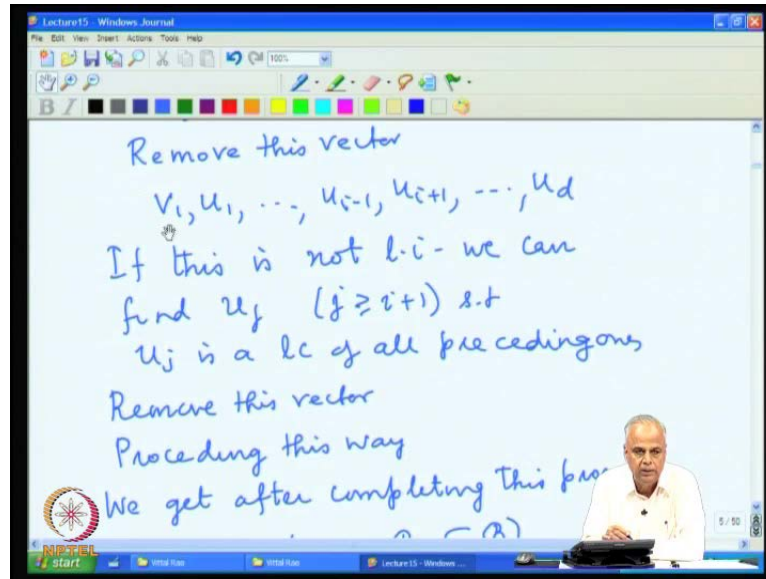 Lecture15 - Windows Journal
File Edit View Insert Actions Tools Help
100%
B I
Remove this vector
v₁, u₁, ..., uᵢ₋₁, uᵢ₊₁, ---, u_d
If this is not l.i - we can
find uⱼ (j ≥ i+1) s.t
uⱼ is a lc of all precedingones
Remove this vector
Proceding this way
We get after completing this
5 / 50
NPTEL
start Vittal Rao Vittal Rao Lecture15 - Windows ...